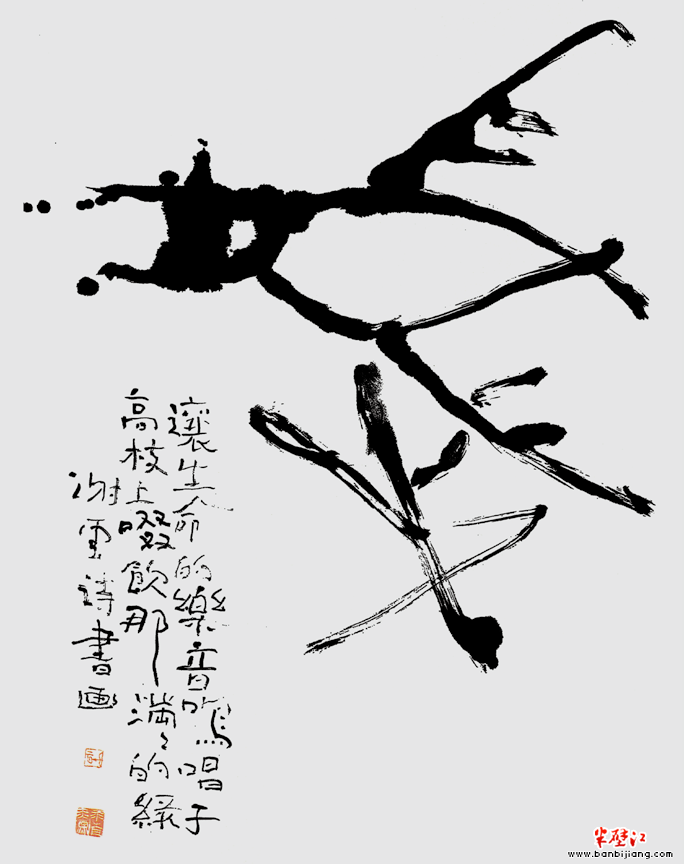 讓生命的樂音鳴唱于
高枝上啜飲那滿々的綠
谢雲诗書画
半壁江
www.banbijiang.com